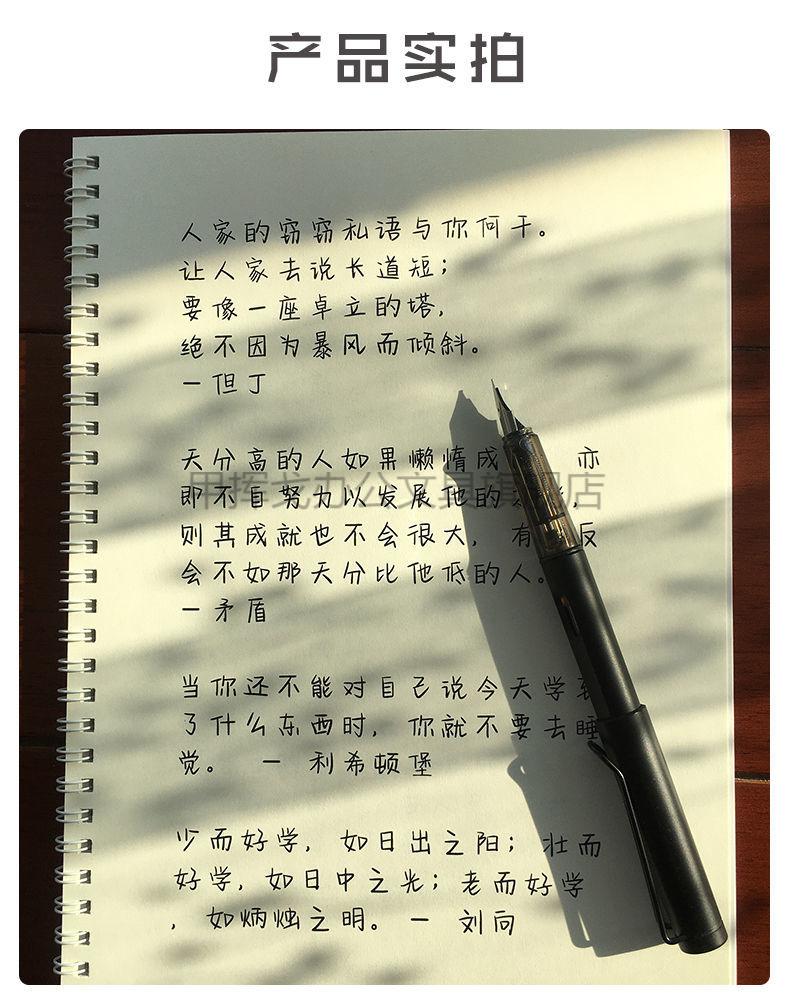 产品实拍
人家的窃窃私语与你何干。
让人家去说长道短；
要像一座卓立的塔，
绝不因为暴风而倾斜。
一但丁
天分高的人如果懒惰成 亦
即不自努力以发展他的 ，
则其成就也不会很大， 有 反
会不如那天分比他低的人。
一矛盾
甲挥戈办公文具旗 店
当你还不能对自己说今天学到
了什么东西时，你就不要去睡
觉。 一 利希顿堡
少而好学，如日出之阳；壮而
好学，如日中之光；老而好学
，如炳烛之明。一 刘向